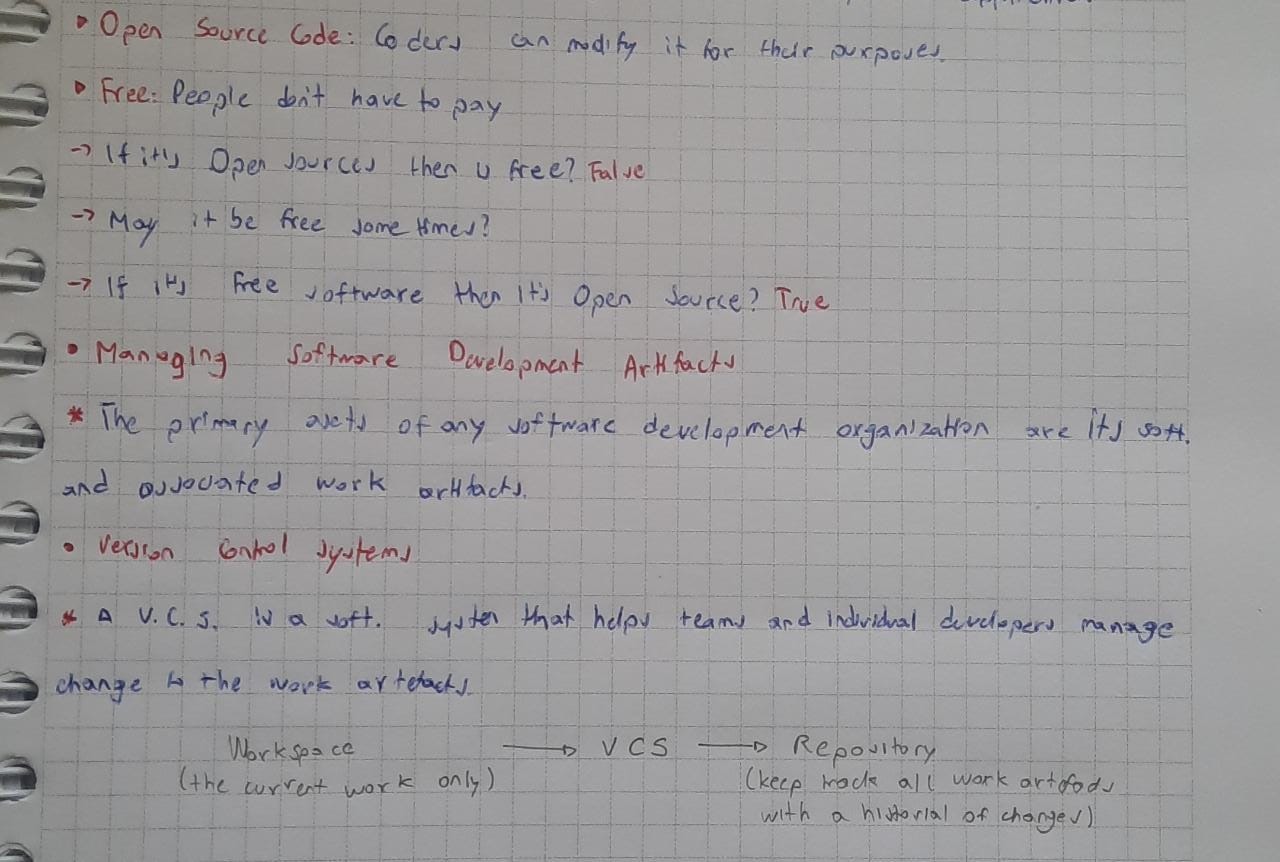 • Open Source Code: Coders can modify it for their purposes.
• Free: People don't have to pay
→ If it's Open sources then is free? False
→ May it be free some times?
→ If it's free software then it's Open Source? True
• Managing Software Development Artifacts
* The primary assets of any software development organization are its soft.
and associated work artifacts.
• Version Control Systems
* A V.C.S. is a soft. system that helps teams and individual developers manage
change to the work artefacts.
Workspace → VCS → Repository
(the current work only) (keep track all work artifacts
with a historial of changes)